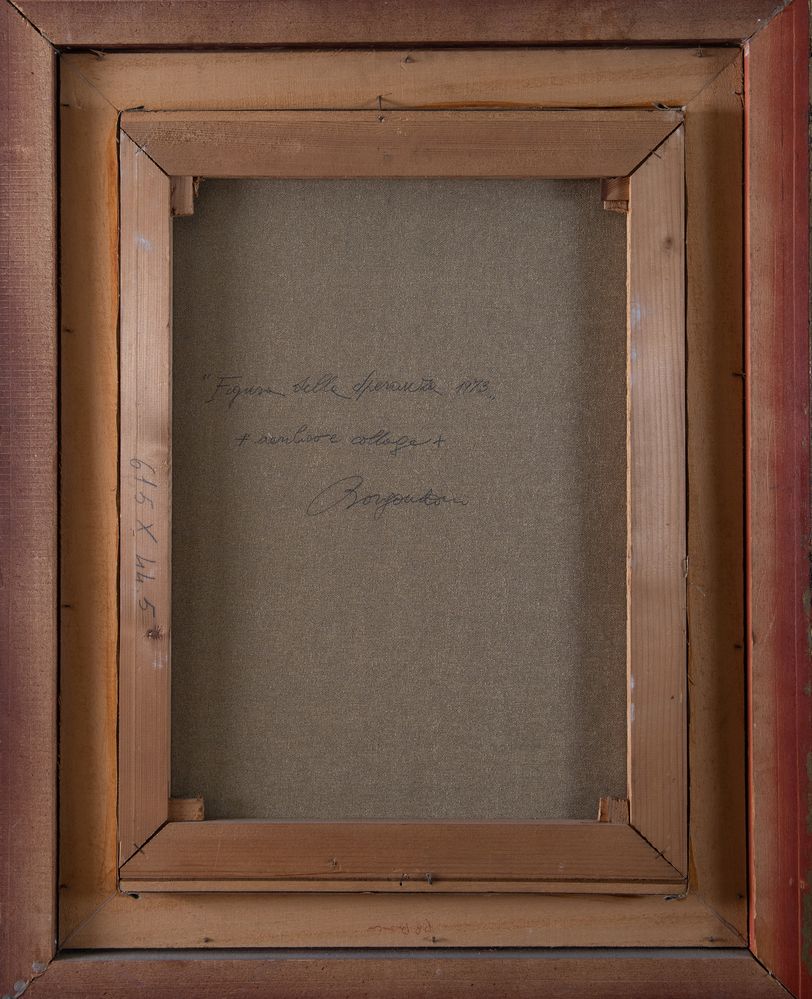 "Figura della Speranza 1973"
+ acrilico e collage +
61 5 X 44 5